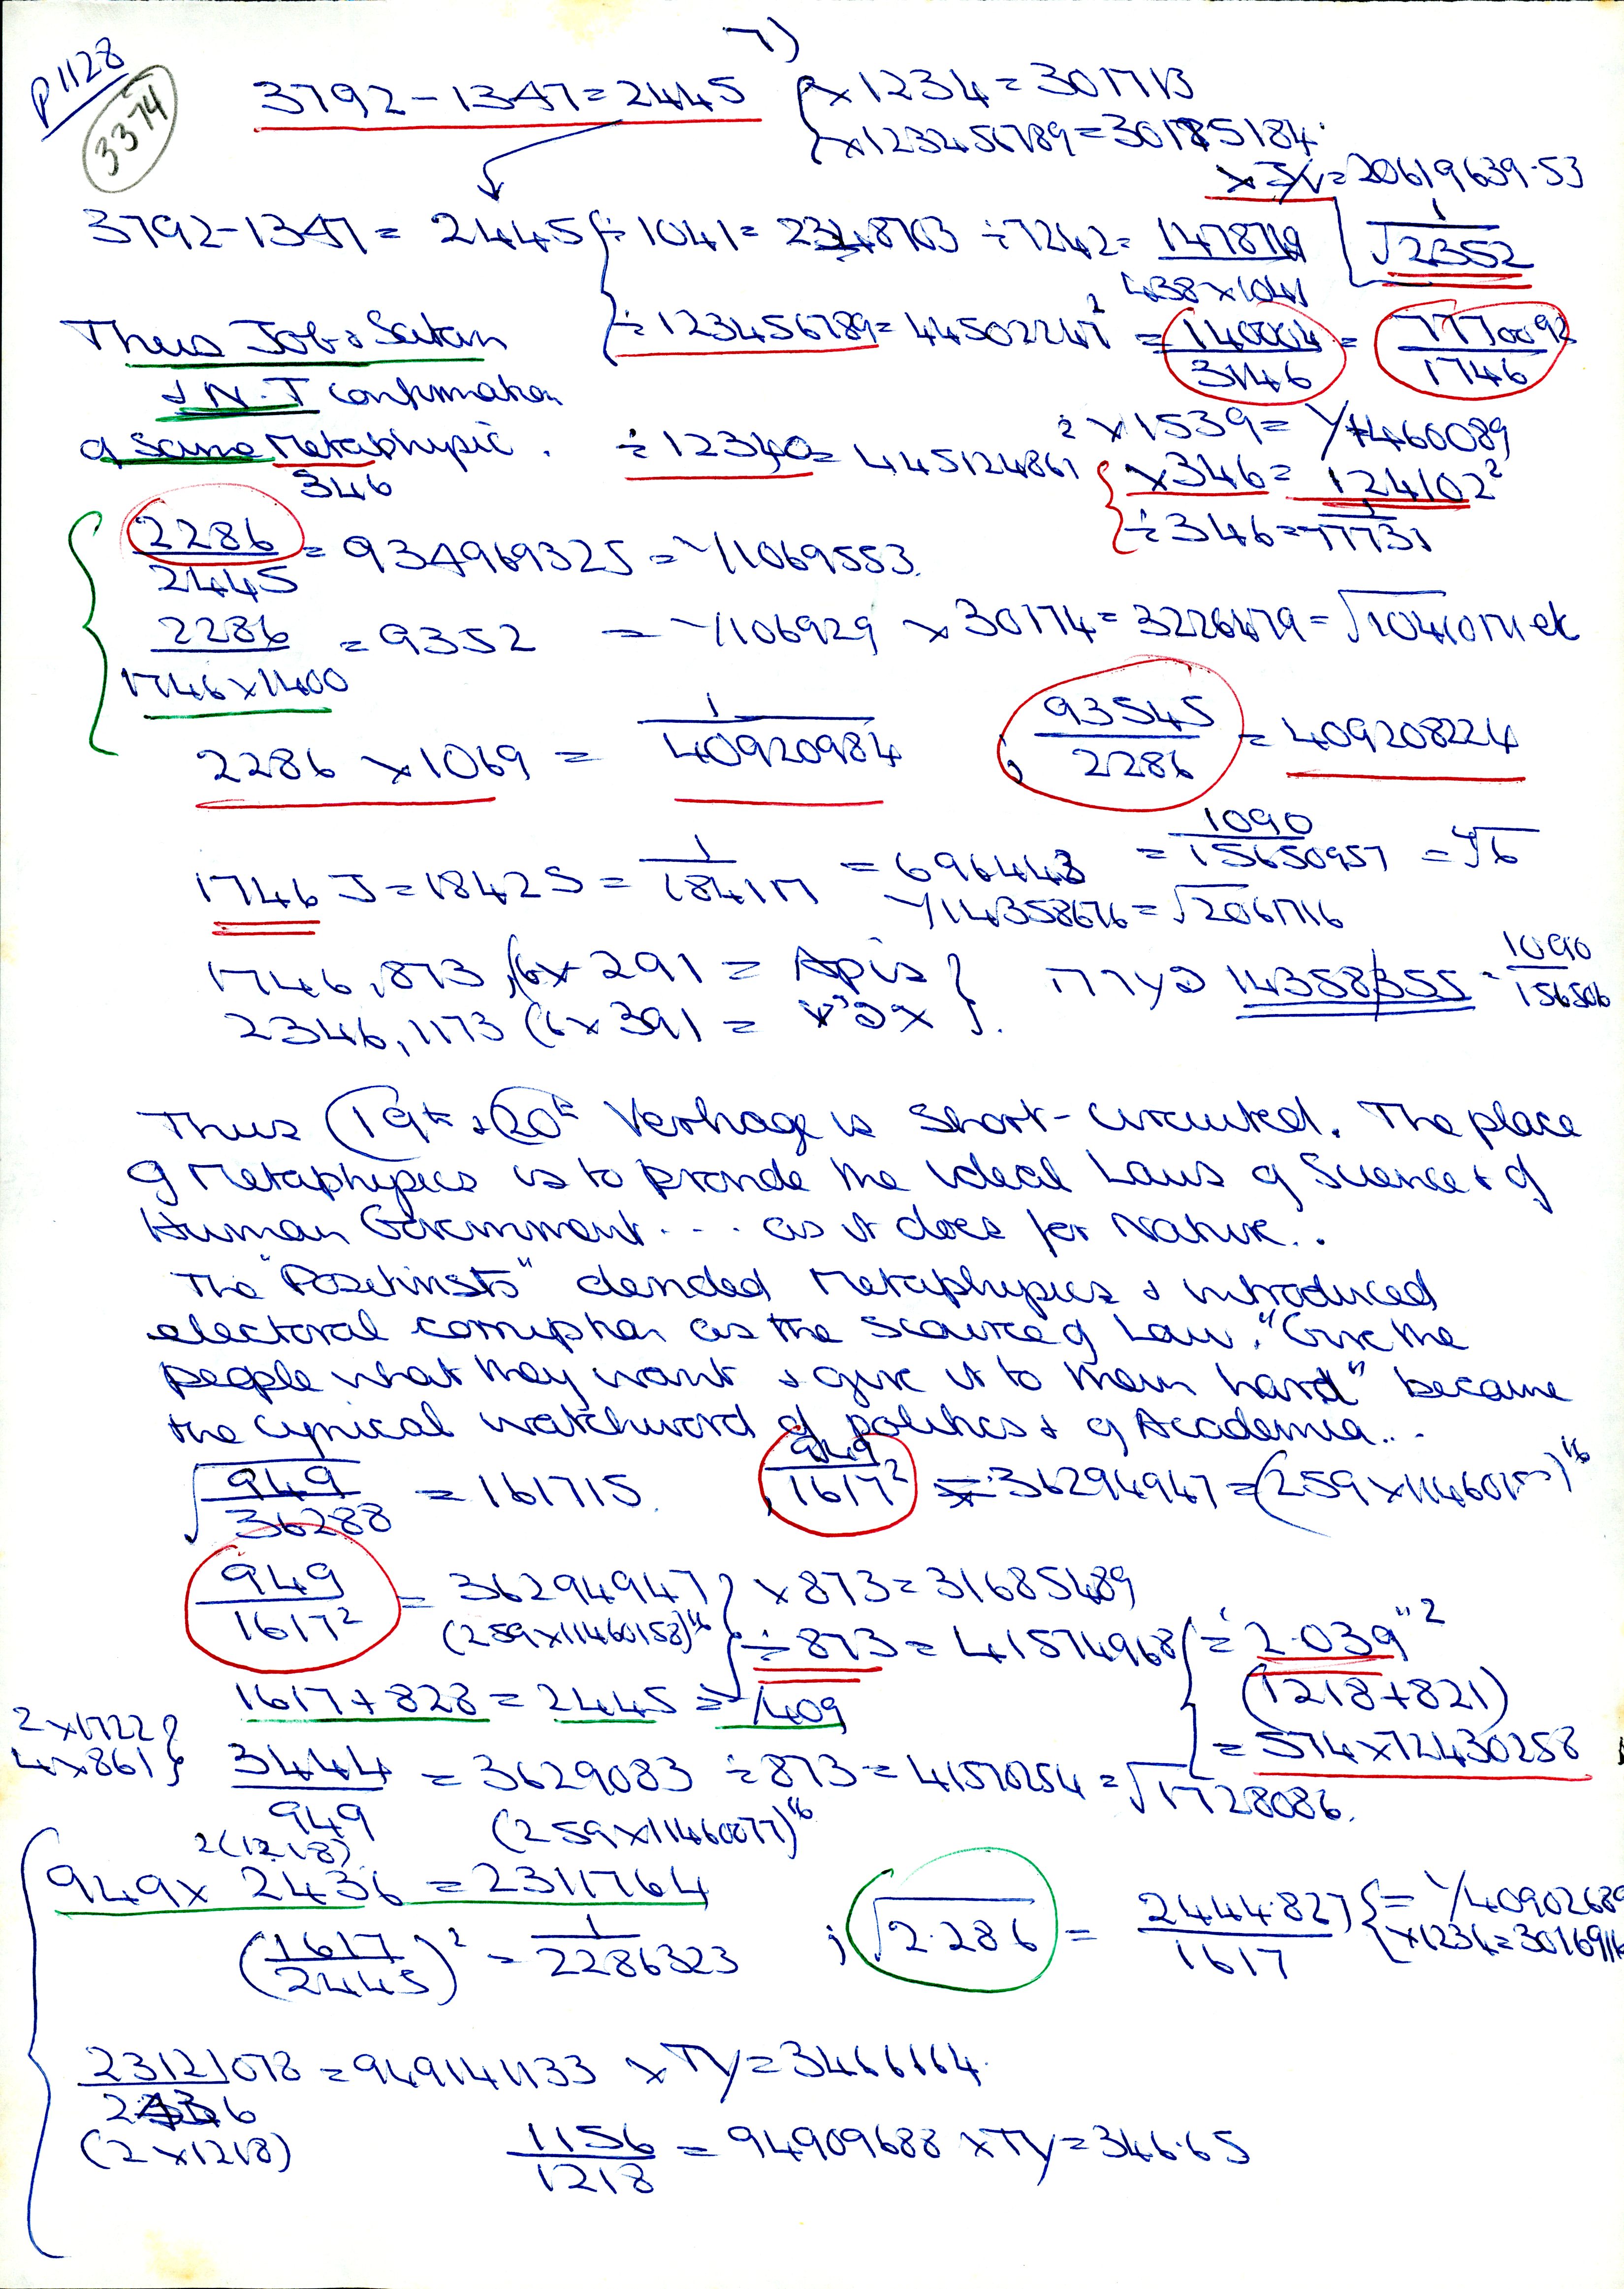 7)
P1128
3374
3792-1347=2445 { ×1234=301713
×123456789=30185184.
3792-1347= 2445 { ÷1041= 2348703 ÷7242= 1478719
438×1041
1
√2352
Thus Job & Satan
÷123456789=44502247² = 140004/3146 = 7770092/1746
& N.T confirmation
of same Metaphysic.
346
÷12340=445124861
×1539=
×346= 124102²
÷346=
2286/2445 = 934969325=1/1069553.
2286/1746×1400 = 9352 = 1/106929 ×30174=3226479=
2286 ×1069 = 1/40920984 ; 93545/2286 = 409208224
1746 J=18425= 1/ = 696443 = 1090/15650957 =
1/114358676=√2061716
1746,873,(6×291 = Apis }
2346,1173 (6×391 =
14358355 = 1090/156506
Thus 19th & 20th Verbiage is short-circuited. The place
of Metaphysics is to provide the ideal Laws of Science & of
Human Government.... as it does for Nature..
The "Positivists" derided Metaphysics & introduced
electoral corruption as the source of Law. "Give the
people what they want & give it to them hard" became
the cynical watchword of politics & of Academia...
√949/36288 = 161715. , 949/1617² = 36294947 =
949/1617² = 36294947 } ×873=31685489
(259×11460158)¹⁶ ÷873=41574968 { = 2.039"²
(1218+821)
1617+828=2445 = 1/409
= 574×72430258
2×1722 }
4×861 }
3444/949 = 3629083 ÷873=41570254=√1728086.
(259×11460077)¹⁶
2(1218)
949× 2436 =2311764
(1617/2445)² = 1/2286323 ; √2.286 = 2444.827/1617 { = 1/40902689
×1234=
23121078/2436 =949141133 ×TY=3466164.
(2×1218)
1156/1218 = 94909688 ×TY=346.65